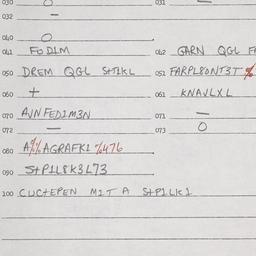 030 O 031 —
032 —
040 O
041 FODIM 042 GARN QGL
050 DREM QGL SHTIKL 051 FARPL80NT3T %
060 + 061 KNAVLXL
070 AVNFEDIM3N 071 —
072 — 073 O
080 A%%AGRAFK1 %476
090 S+P1L8K3L73
100 CUCTEPEN M1T A S+P1LK1